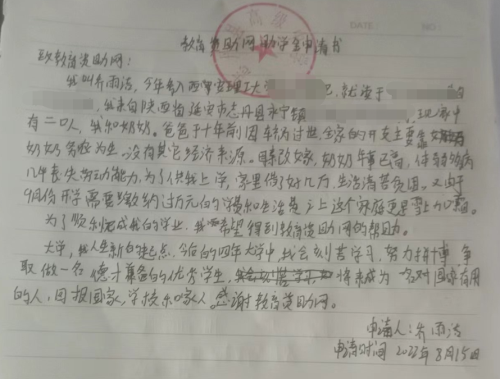 教育资助网助学金申请书
DATE NO.
致教育资助网：
我叫乔雨洁，今年考入西华 理工大学 ，就读于 的
，我来自陕西省延安市志丹县永宁镇 ，现家中
有二口人，我和奶奶。爸爸于十年前因 病过世，全家的开支主要靠
奶奶 为生。没有其它经济来源。 改嫁，奶奶年事已高，体弱多病
几年丧失劳动能力，为了供我上学，家里借了好几万，生活清苦 。又由于
9月份开学需要缴纳过万元的学费和生活费，让这个家庭更是雪上加霜。
为了顺利完成我的学业，我 希望得到教育资助网的帮助。
大学，我人生新的起点，今后的四年大学中，我会刻苦学习，努力拼搏，争
取做一名德才兼备的优秀学生， 将来成为一名对国家有用
的人，回报国家，学校和家人。感谢教育资助网。
申请人：乔雨洁
申请时间 2022年8月15日